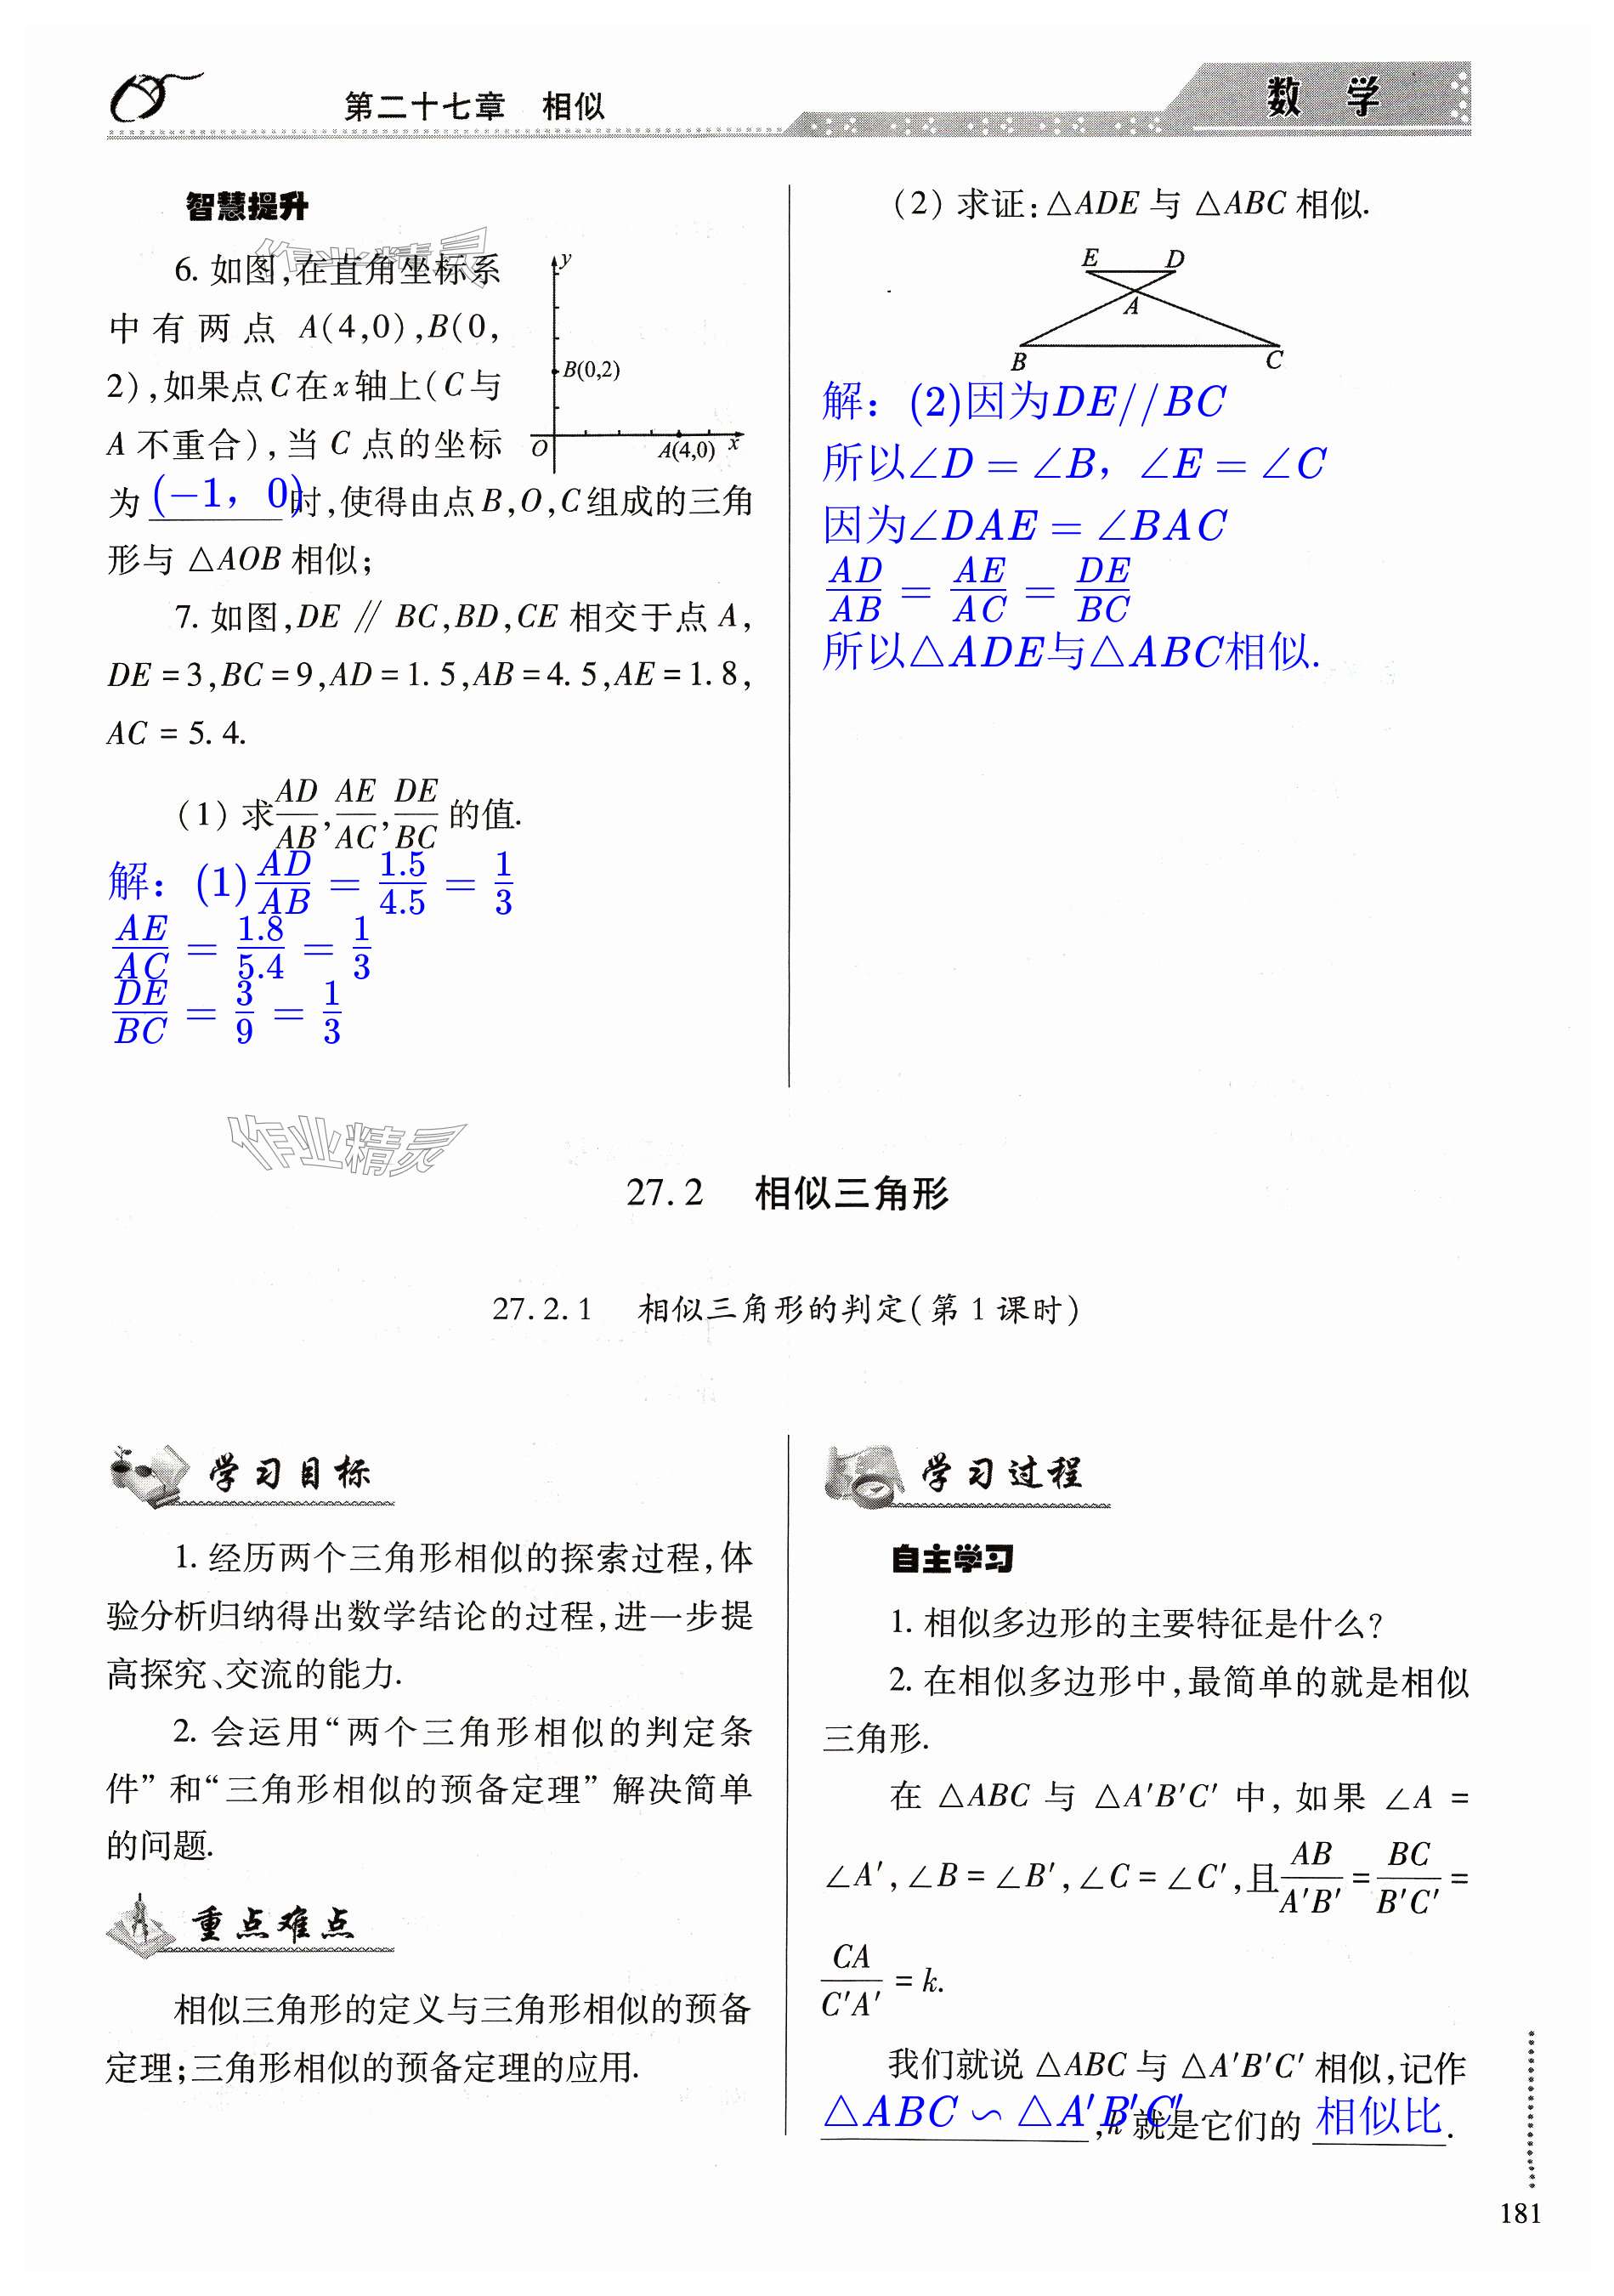 第二十七章 相似
数 学
智慧提升
作业精灵
6. 如图,在直角坐标系
中有两点 A(4,0),B(0,
2),如果点C在x轴上(C与
A 不重合),当 C 点的坐标
为 (−1, 0) 时,使得由点B,O,C组成的三角
形与 △AOB 相似;
y
B(0,2)
O
A(4,0)
x
7. 如图,DE ∥ BC,BD,CE 相交于点 A,
DE=3,BC=9,AD=1.5,AB=4.5,AE=1.8,
AC=5.4.
(1) 求AD/AB,AE/AC,DE/BC的值.
解: (1)AD/AB = 1.5/4.5 = 1/3
AE/AC = 1.8/5.4 = 1/3
DE/BC = 3/9 = 1/3
(2) 求证:△ADE 与 △ABC 相似.
E D
A
B C
解: (2)因为DE//BC
所以∠D = ∠B, ∠E = ∠C
因为∠DAE = ∠BAC
AD/AB = AE/AC = DE/BC
所以△ADE与△ABC相似.
作业精灵
27.2 相似三角形
27.2.1 相似三角形的判定(第1课时)
学习目标
1. 经历两个三角形相似的探索过程,体
验分析归纳得出数学结论的过程,进一步提
高探究、交流的能力.
2. 会运用“两个三角形相似的判定条
件”和“三角形相似的预备定理”解决简单
的问题.
重点难点
相似三角形的定义与三角形相似的预备
定理;三角形相似的预备定理的应用.
学习过程
自主学习
1. 相似多边形的主要特征是什么?
2. 在相似多边形中,最简单的就是相似
三角形.
在 △ABC 与 △A′B′C′ 中, 如果 ∠A =
∠A′,∠B=∠B′,∠C=∠C′,且AB/A′B′=BC/B′C′=
CA/C′A′=k.
我们就说 △ABC 与 △A′B′C′ 相似,记作
△ABC∽△A′B′C′,k 就是它们的 相似比.
181